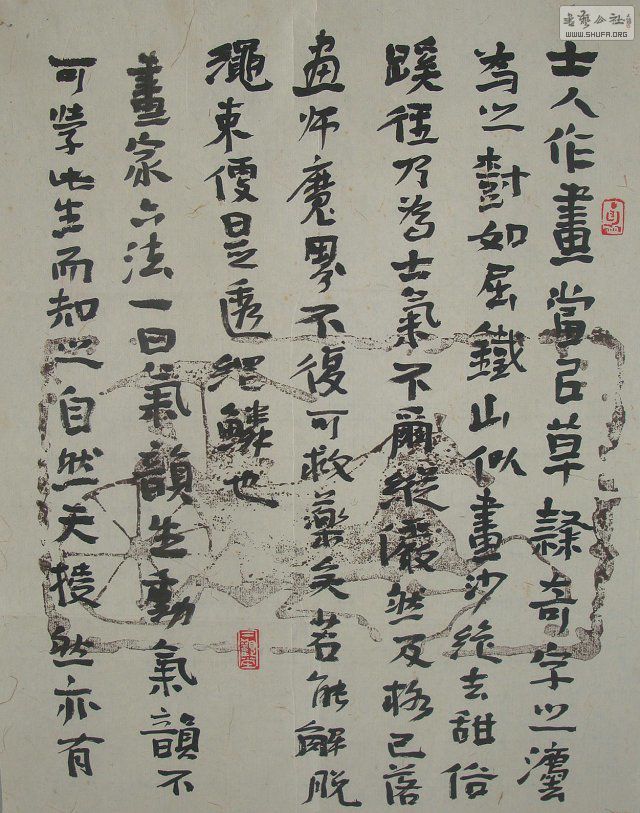 書藝公社
WWW.SHUFA.ORG
士人作畫當以草隸奇字之灋
為之樹如屈鐵山似畫沙絕去甜俗
蹊徑乃為士氣不爾縱儼然及格已落
畫师魔界不復可救藥矣若能解脫
繩束便是透網鱗也
畫家六法一曰氣韻生動氣韻不
可學此生而知之自然天授然亦有